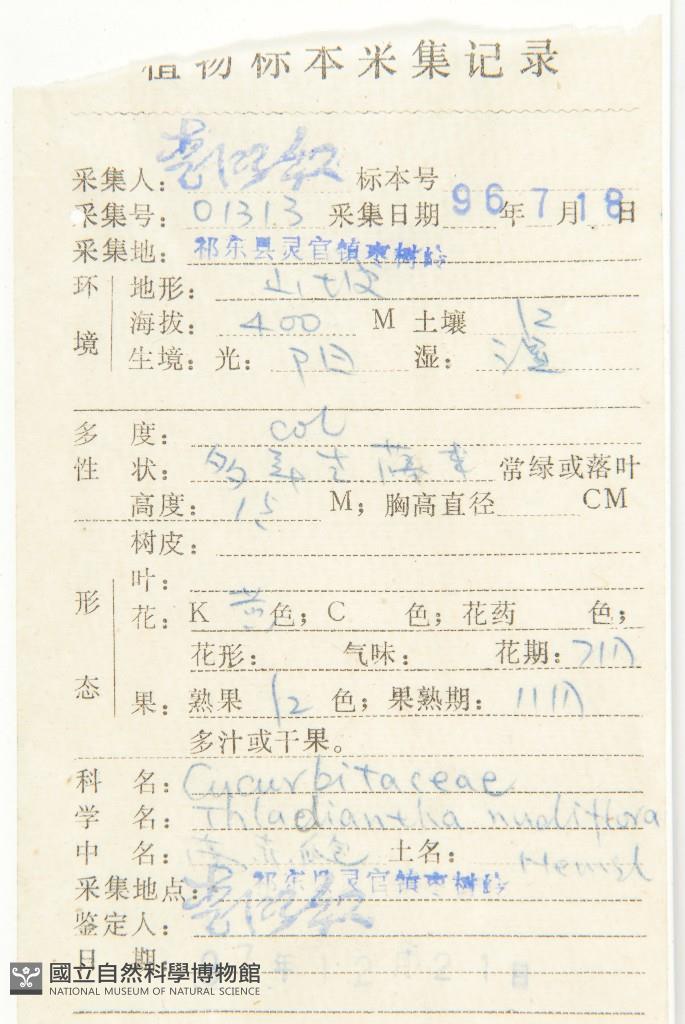 植物标本采集记录
采集人： 标本号
采集号：01313 采集日期 96年7月18日
采集地：祁东县灵官镇枣树岭
环境 地形：山坡
海拔：400 M 土壤 红
生境：光：阳 湿：湿
多度：col
性状：多年生藤本 常绿或落叶
高度：1.5 M；胸高直径 CM
树皮：
形态 叶：
花：K 黄色；C 色；花药 色；
花形： 气味： 花期：7月
果：熟果 红 色；果熟期：11月
多汁或干果。
科名：Cucurbitaceae
学名：Thladiantha nudiflora
Hemsl
中名： 土名：
采集地点：祁东县灵官镇枣树岭
鉴定人：
日期： 年12月21日
國立自然科學博物館
NATIONAL MUSEUM OF NATURAL SCIENCE